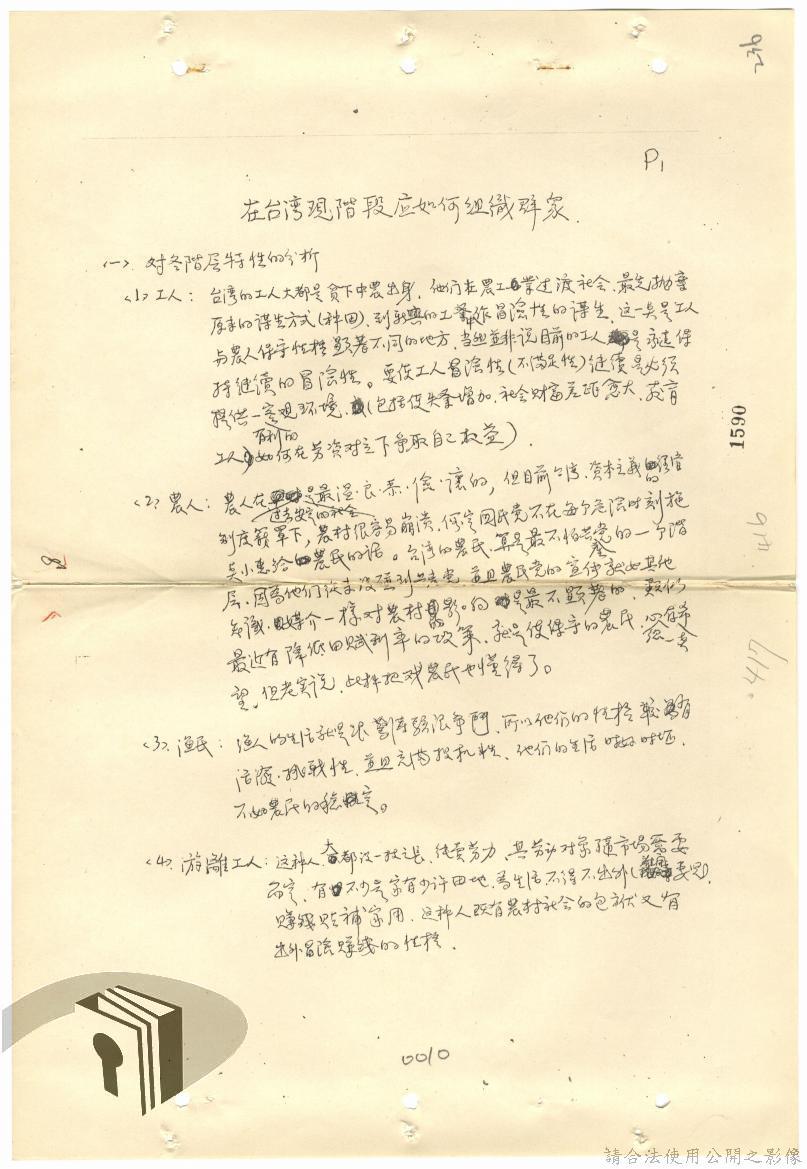 236
P1
在台湾現階段应如何組織群众.
(一) 对各階层特性的分析
(1) 工人: 台湾的工人大都是貧下中農出身, 他們在農工業过渡社会, 最先抛棄
原來的謀生方式(种田), 到新興的工業作冒险性的謀生, 这一点是工人
与農人保守性格顯著不同的地方, 当然並非説目前的工人是永遠保
持継續的冒险性。要使工人冒险性(不滿足性)继續是必須
提供一客观环境, (包括使失業增加, 社会財富差距愈大, 教育
有利的
工人如何在劳資对立下爭取自己权益).
(2) 農人: 農人在是最溫·良·恭·儉·讓的, 但目前台湾, 資本主義的經官
过去安定的社会
制度籠罩下, 農村很容易崩潰, 何况国民党不在每个危险时刻施
点小惠給農民的話。台湾的農民, 算是最不怕共党的一个階
层, 因為他們從未没碰到共党, 並且農民党的宣伝就如其他
知識·媒介一樣对農村的影响是最不顯著的, 類似
最近有降低田賦利率的政策, 就是使保守的農民, 心存希
望, 但老实説, 此种把戏農民也懂得了。
(3) 漁民: 漁人的生活就是跟驚涛駭浪爭鬥, 所以他們的性格較具有
活潑·挑戰性, 並且充滿投机性, 他們的生活时好时坏,
不如農民的穩定。
(4) 游離工人: 这种人, 大都没一技之長, 純賣劳力, 其劳动对象隨市場需要
而定, 有不少是家有少許田地, 為生活不得不出外
賺錢貼補家用, 这种人既有農村社会的包袱又有
出外冒险賺錢的性格.
1590
416
417
0010
請合法使用公開之影像